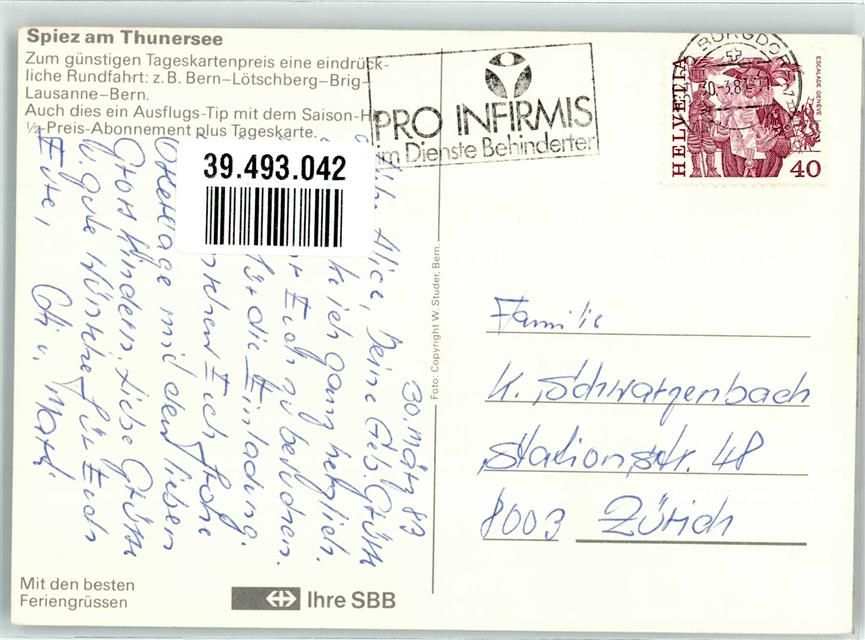 Spiez am Thunersee
Zum günstigen Tageskartenpreis eine eindrück-
liche Rundfahrt: z.B. Bern–Lötschberg–Brig–
Lausanne–Bern.
Auch dies ein Ausflugs-Tip mit dem Saison-H
½-Preis-Abonnement plus Tageskarte.
PRO INFIRMIS
im Dienste Behinderter
BURGDORF 1
30.-3.83
HELVETIA
ESCALADE GENÈVE
40
39.493.042
30. März 83
Alice, Deine Geb. Grüsse
ich ganz herzlich.
Euch zu besuchen.
für die Einladung.
Euch frohe
Ostertage mit den lieben
Gross Kindern. Liebe Grüsse
u. gute Wünsche für Euch
Eure,
Foto: Copyright W. Studer, Bern.
Familie
K. Schwarzenbach
Stationsstr. 48
8003 Zürich
Mit den besten
Feriengrüssen
Ihre SBB